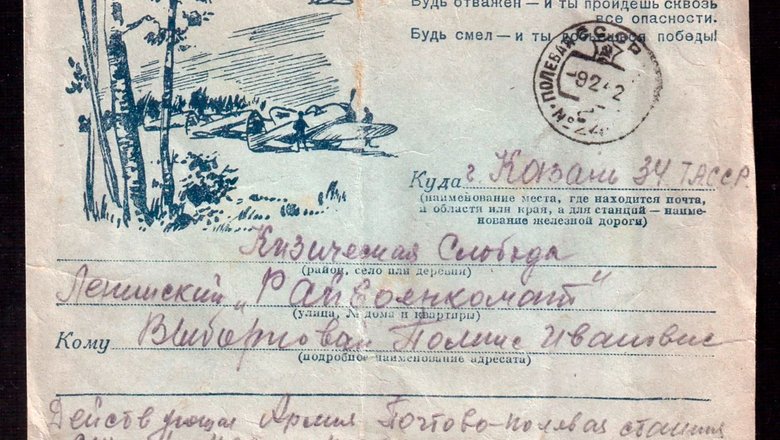 Будь отважен — и ты пройдешь сквозь
все опасности.
Будь смел — и ты добьешься победы!
СССР
ПОЛЕВАЯ
-9 2 42
Куда г. Казань 34 ТАССР.
(наименование места, где находится почта,
а области или края, а для станций — наиме-
нование железной дороги)
Кизическая Слобода
(район, село или деревня)
Ленинский „Райвоенкомат"
(улица, № дома и квартиры)
Кому Выборновай Полине Ивановне
(подробное наименование адресата)
Действующая Армия Почтово-полевая станция